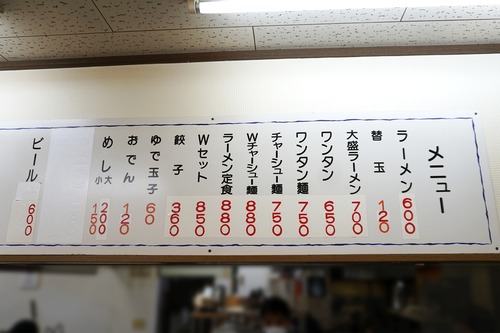 メニュー
ラーメン 600
替玉 120
大盛ラーメン 700
ワンタン 650
ワンタン麺 750
チャーシュー麺 750
Wチャーシュー麺 880
ラーメン定食 880
Wセット 850
餃子 360
ゆで玉子 60
おでん 120
めし 大 200
小 150
ビール 600